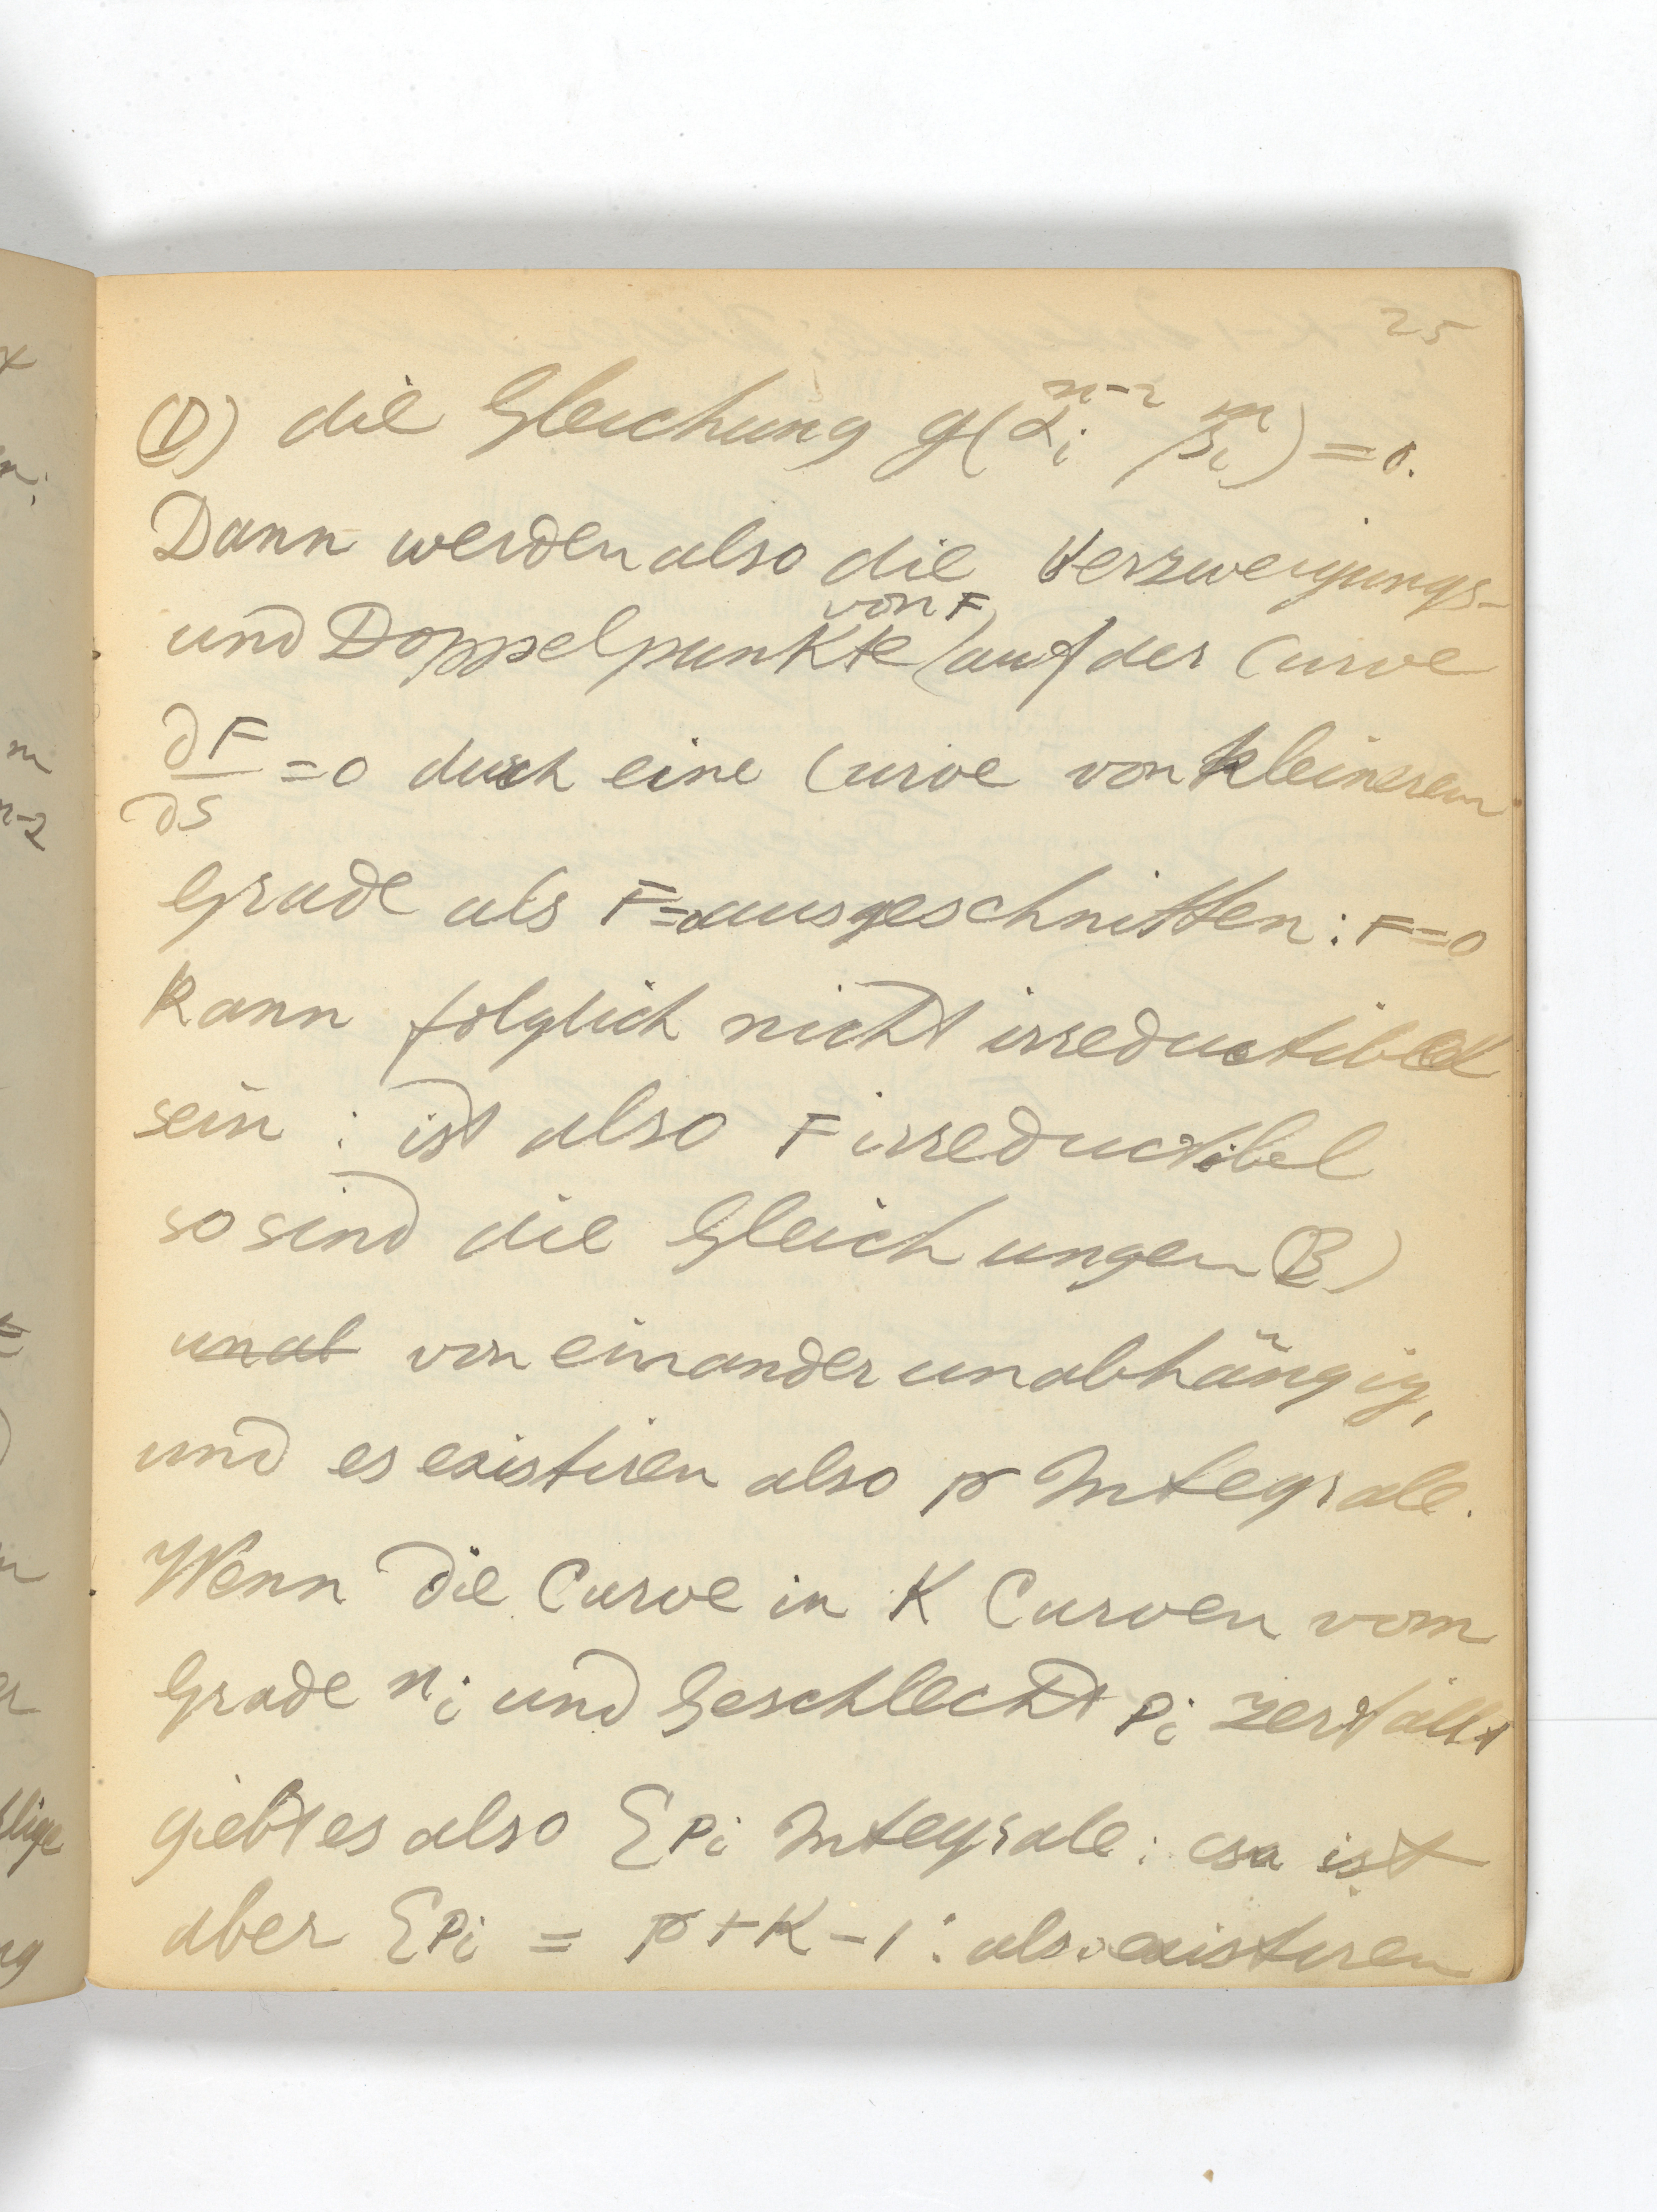 25
(1) die Gleichung g(α_i^{n-2} β_i^m) = 0.
Dann werden also die Verzweigungs-
von F
und Doppelpunkte auf der Curve
∂F/∂s = 0 durch eine Curve von kleinerem
Grade als F=0 ausgeschnitten: F=0
kann folglich nicht irreductibel
sein: ist also F irreductibel
so sind die Gleichungen B)
unab von einander unabhängig,
und es existiren also p Integrale.
Wenn die Curve in K Curven vom
Grade n_i und Geschlecht p_i zerfällt
giebt es also Σp_i Integrale: ist
aber Σp_i = p+K-1: also existiren